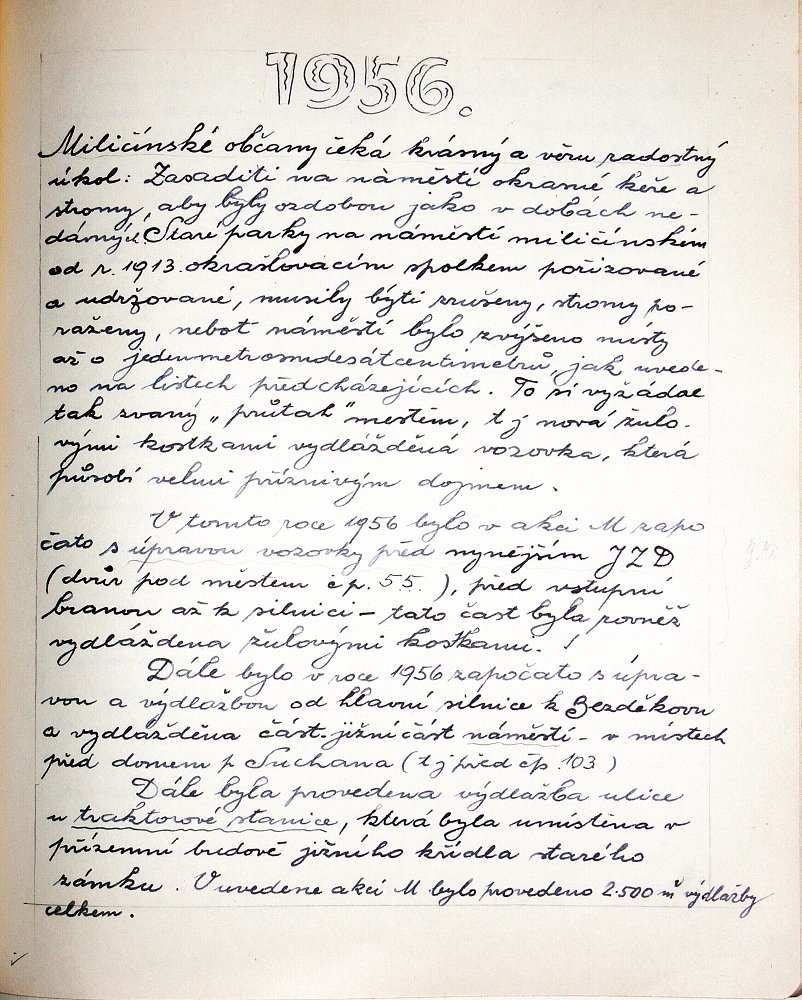 1956.
Miličínské občany čeká krásný a věru radostný
úkol: Zasaditi na náměstí okrasné keře a
stromy, aby byly ozdobou jako v dobách ne-
dávných. Staré parky na náměstí miličínském
od r. 1913. okrašlovacím spolkem pořizované
a udržované, musily býti zrušeny, stromy po-
raženy, neboť náměstí bylo zvýšeno místy
až o jedenmetrosmdesátcentimetrů, jak uvede-
no na listech předcházejících. To si vyžádal
tak zvaný „průtah" mestem, t j nová žulo-
vými kostkami vydlážděná vozovka, která
působí velmi příznivým dojmem.
V tomto roce 1956 bylo v akci M zapo
čato s úpravou vozovky před nynějším JZD
(dvůr pod městem č p. 55. ), před vstupní
branou až k silnici - tato část byla rovněž
vydláždena žulovými kostkami.
Dále bylo v roce 1956 započato s úpra-
vou a výdlažbou od hlavní silnice k Bezděkovu
a vydlážděna část. jižní část náměstí - v místech
před domem p Suchana (t j před čp. 103)
Dále byla provedena výdlažba ulice
u traktorové stanice, která byla umístěna v
přízemní budově jižního křídla starého
zámku. V uvedene akci M bylo provedeno 2.500 m² výdlažby
celkem.